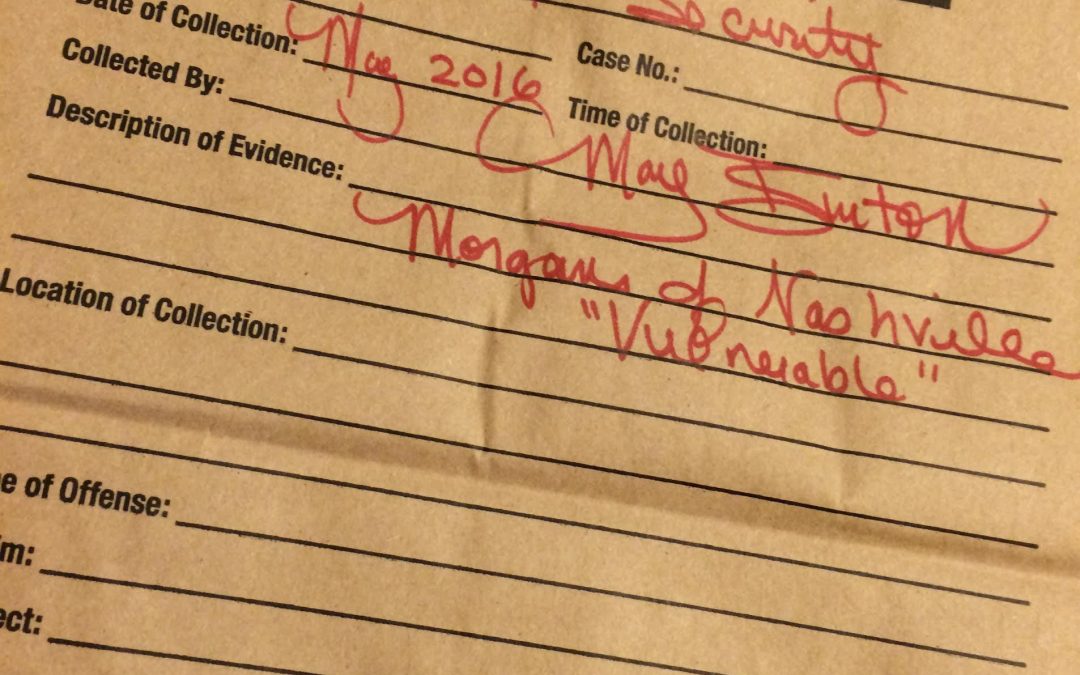 Security
Date of Collection: May 2016
Case No.:
Collected By:
Time of Collection:
Mary Burton
Description of Evidence:
Morgans of Nashville
"Vulnerable"
Location of Collection:
e of Offense:
im:
ect: